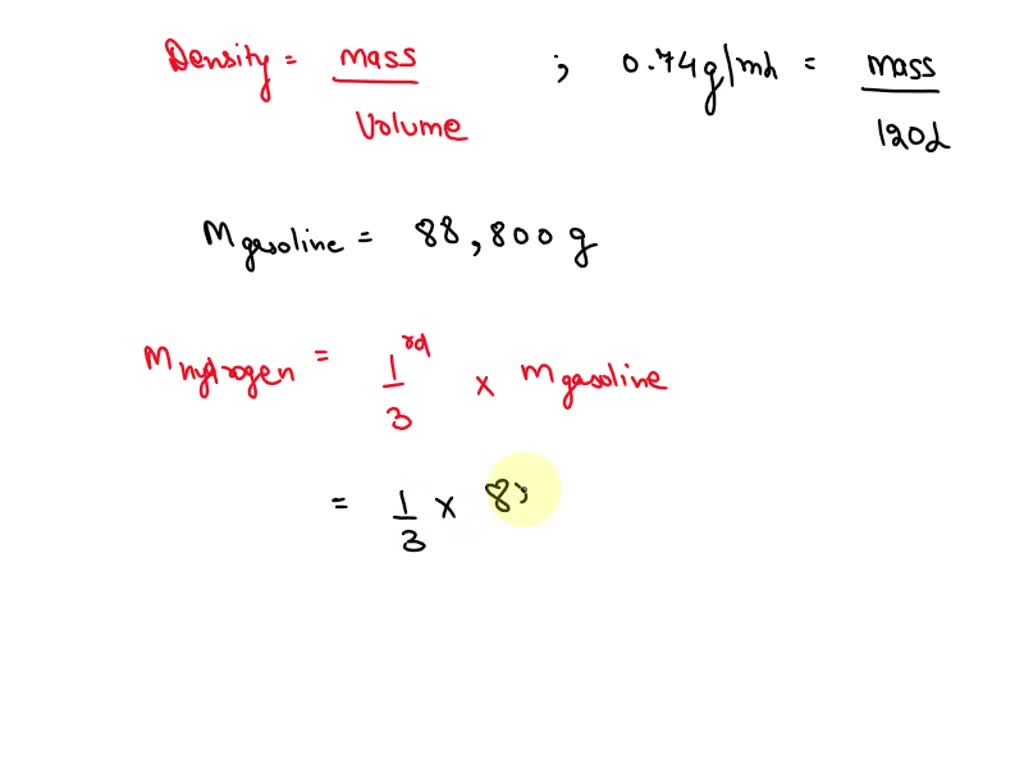 Density = mass / Volume ; 0.74 g/mL = mass / 120L
Mgasoline = 88,800 g
Mhydrogen = 1/3 rd x mgasoline
= 1/3 x 8